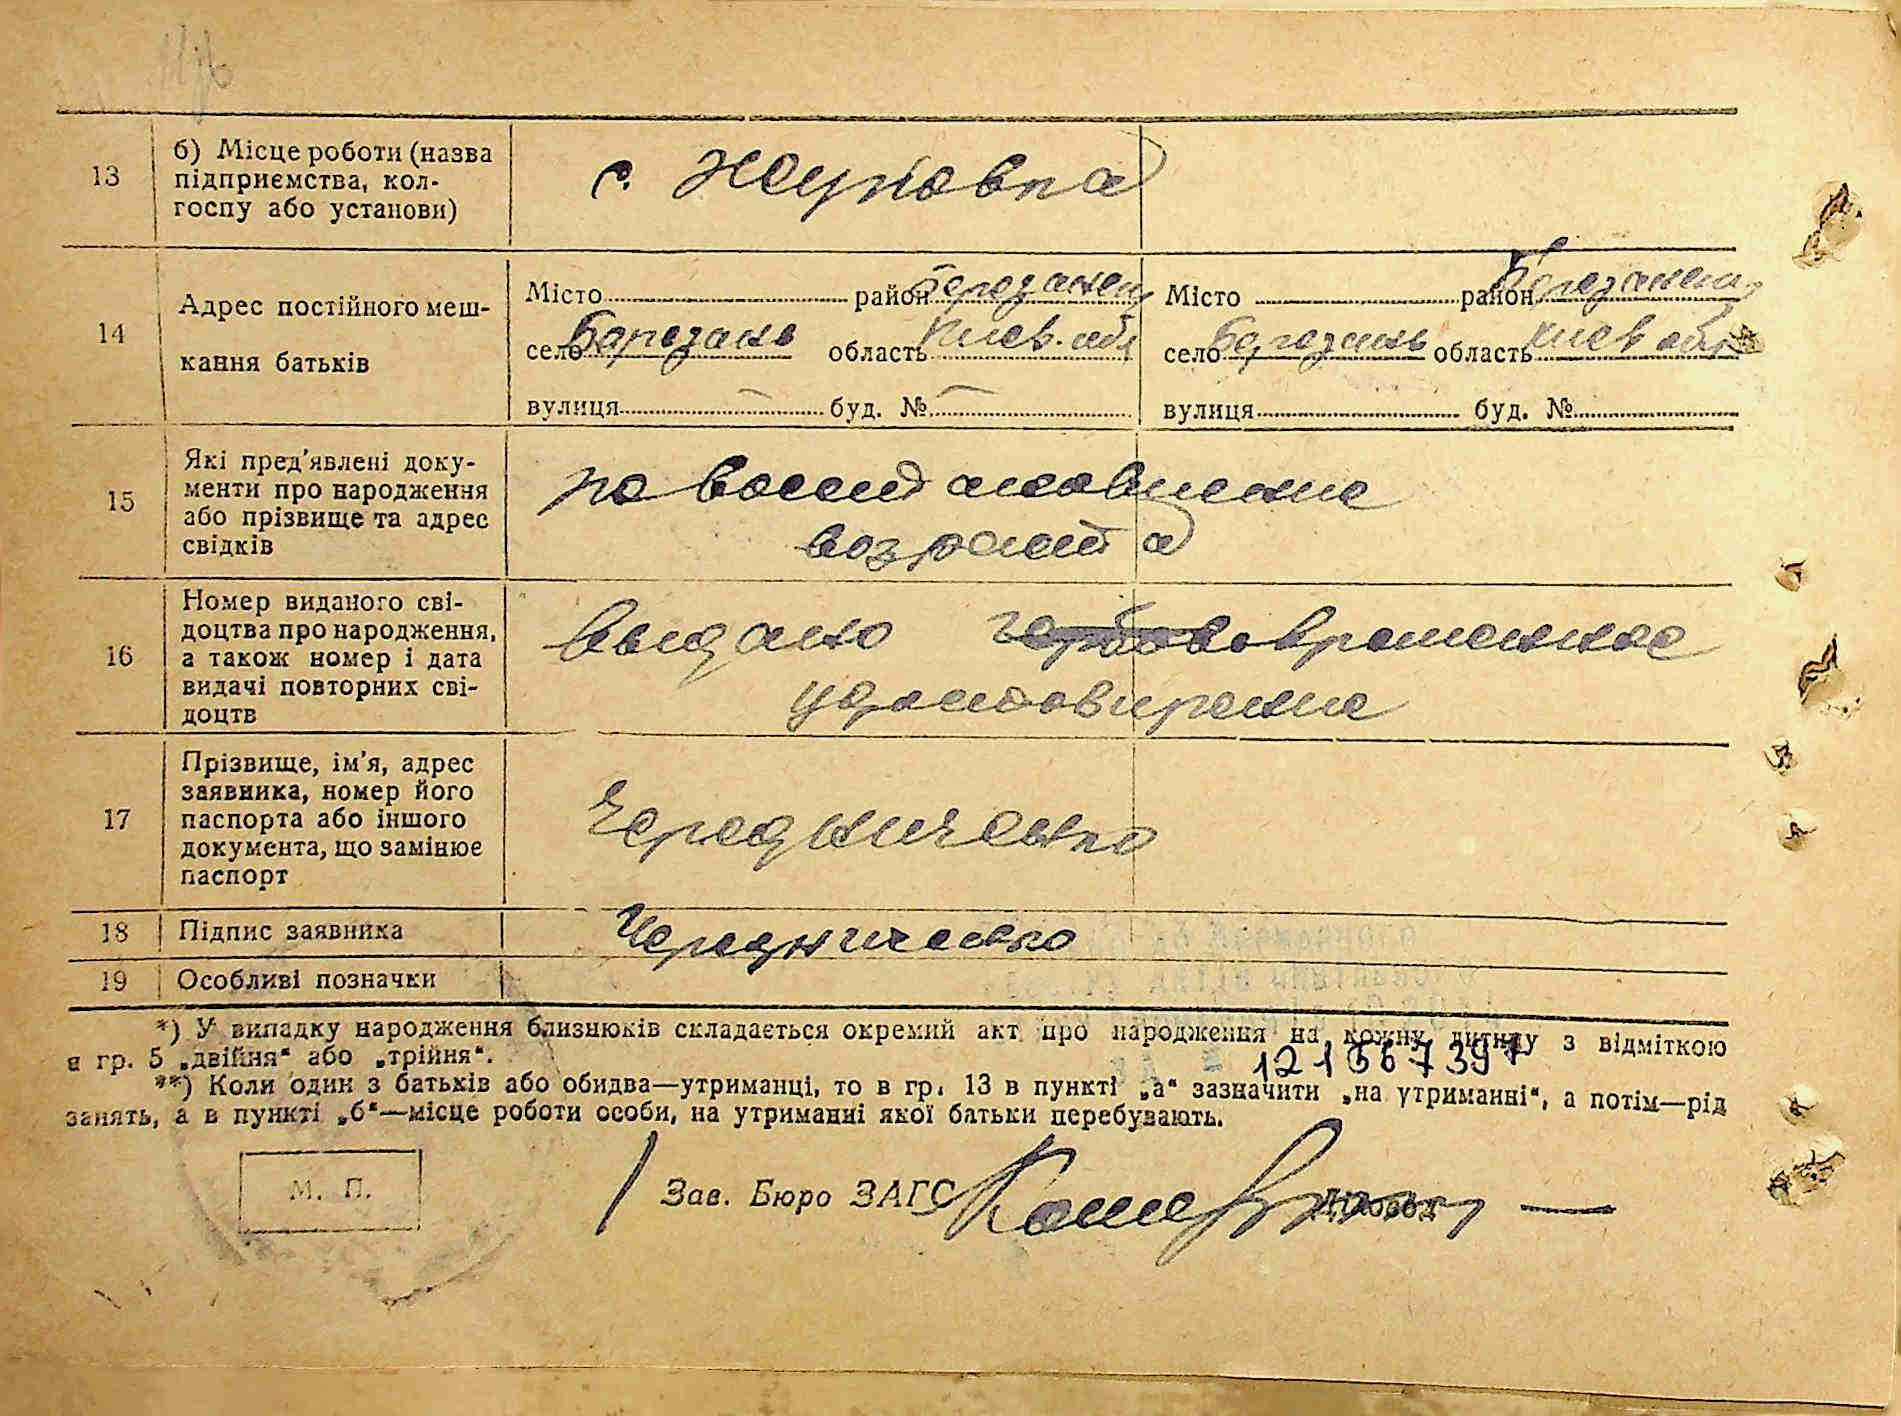 13
б) Місце роботи (назва
підприємства, кол-
госпу або установи)
с. Жуковка
14
Адрес постійного меш-
кання батьків
Місто район Березанск
село Березань область Киев. обл
вулиця буд. №
Місто район Березанск
село Березань область Киев обл
вулиця буд. №
15
Які пред'явлені доку-
менти про народження
або прізвище та адрес
свідків
по востановление
возраста
16
Номер виданого сві-
доцтва про народження,
а також номер і дата
видачі повторних сві-
доцтв
выдано временное
удостовирение
17
Прізвище, ім'я, адрес
заявника, номер його
паспорта або іншого
документа, що замінює
паспорт
Чередниченко
18
Підпис заявника
Чередниченко
19
Особливі позначки
*) У випадку народження близнюків складається окремий акт про народження на кожну дитину з відміткою
в гр. 5 „двійня“ або „трійня“.
**) Коли один з батьків або обидва—утриманці, то в гр. 13 в пункті „а“ зазначити „на утриманні“, а потім—рід
занять, а в пункті „б“—місце роботи особи, на утриманні якої батьки перебувають.
М. П.
Зав. Бюро ЗАГС